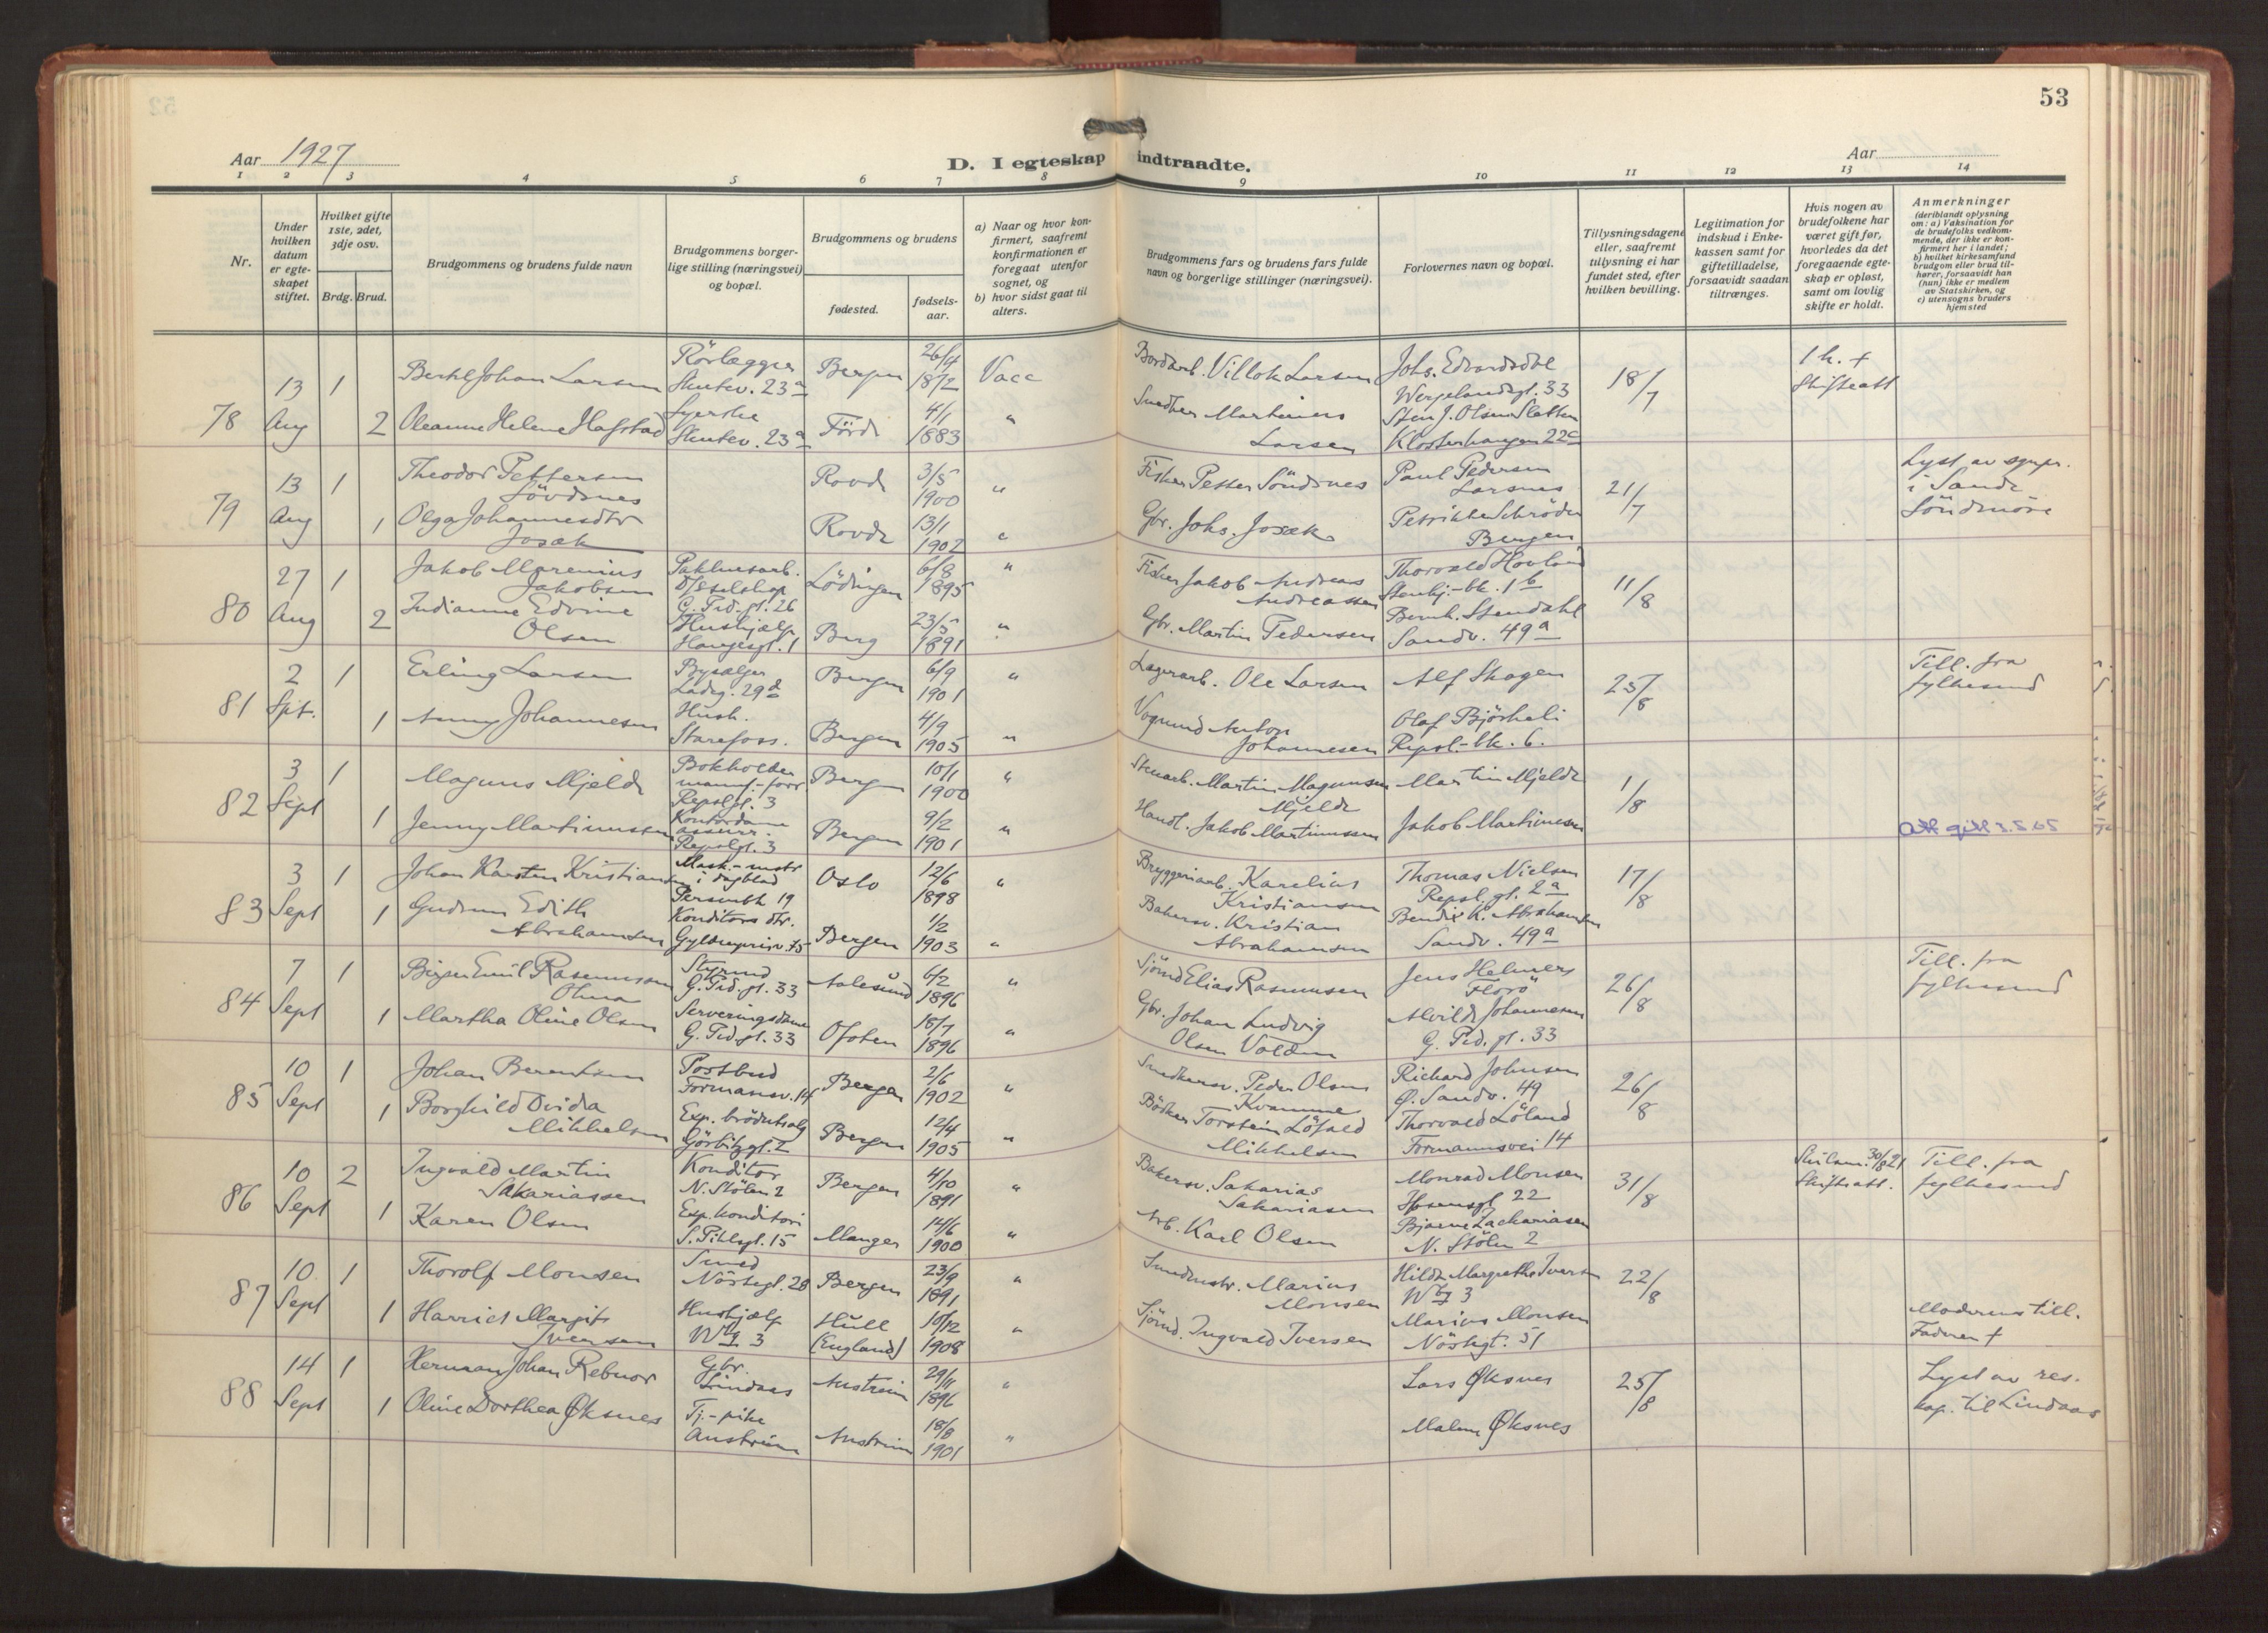 53
Aar 1927
D. I egteskap indtraadte.
Aar
1 2 3 4 5 6 7 8 9 10 11 12 13 14
Nr.
Under hvilken datum er egteskapet stiftet.
Hvilket gifte 1ste, 2det, 3dje osv.
Brdg. Brud.
Brudgommens og brudens fulde navn
Brudgommens borgerlige stilling (næringsvei) og bopæl.
Brudgommens og brudens
fødested.
fødselsaar.
a) Naar og hvor konfirmert, saafremt konfirmationen er foregaat utenfor sognet, og
b) hvor sidst gaat til alters.
Brudgommens fars og brudens fars fulde navn og borgerlige stillinger (næringsvei).
Forlovernes navn og bopæl.
Tillysningsdagene eller, saafremt tillysning ei har fundet sted, efter hvilken bevilling.
Legitimation for indskud i Enkekassen samt for giftetilladelse, forsaavidt saadan tiltrænges.
Hvis nogen av brudefolkene har været gift før, hvorledes da det foregaaende egteskap er opløst, samt om lovlig skifte er holdt.
Anmerkninger
(deriblandt oplysning om: a) Vaksination for de brudefolks vedkommende, der ikke er konfirmert her i landet; b) hvilket kirkesamfund brudgom eller brud tilhører, forsaavidt han (hun) ikke er medlem av Statskirken, og c) utensogns bruders hjemsted
78 13 Aug 1 Johan Larsen Rörlægger Skutev. 23a Bergen 26/4 1872 Vacc Larsen Johs. Edvardsdal Wergelandsgt. 33 18/7 1 h. + Skifteatt
2 Oleanne Helene Hafstad Syerske Skutev. 23a Förde 4/1 1883 " Martinius Larsen Sten J. Olsen Sletten Klosterhaugen 22c
79 13 Aug 1 Theodor Pettersen Rovde 3/5 1900 " Fisker Petter Paul Pedersen Larsnes 21/7 Lyst av sgnpr. i Sande Söndmöre
1 Olga Johannesdtr Josæk Rovde 13/1 1902 " Gbr. Johs. Josæk Petrikke Schröder Bergen
80 27 Aug 1 Jakob Marenius Jakobsen Pakhusarb. D/Sselskap C. Sundsgt. 26 Lödingen 6/8 1895 " Fisker Jakob Andreas Andreassen Thorvald Hovland Stenkj.-bk. 1b 11/8
2 Indianne Edvine Olsen Hushjælp Haugesgt. 1 Berg 23/5 1891 " Gbr. Martin Pedersen Bernh. Stendahl Sandv. 49a
81 2 Spt. 1 Erling Larsen Bysælger Ladeg. 29d Bergen 6/9 1901 " Lagerarb. Ole Larsen Alf Skagen 25/8 Till. fra fylkesmd
1 Anny Johannesen Hush. Starefoss. Bergen 4/9 1905 " Vognmd Anton Johannesen Olaf Björkeli Repsl.-bk. 6.
82 3 Sept 1 Magnus Mjelde Bokholder manuf.-forr Repslgt. 3 Berg 10/1 1900 " Martin Magnussen Mjelde Martin Mjelde 1/8
1 Jenny Martinussen Kontordame assuranse Repslgt. 3 Bergen 9/2 1901 " Handl. Jakob Martinussen Jakob Martinussen Att gitt 3.5.65
83 3 Sept 1 Johan Karsten Kristiansen Mask.-mstr i dagblad 19 Oslo 12/6 1898 " Bryggeriarb. Karelius Kristiansen Thomas Nielsen Repsl.gt. 2a 17/8
1 Gudrun Edith Abrahamsen Konditors dtr. Gyldenprisv. 75 Bergen 1/2 1903 " Bakersv. Kristian Abrahamsen Bendix K. Abrahamsen Sandv. 49a
84 7 Sept 1 Birger Emil Rasmussen Styrmd 33 Aalesund 6/2 1896 " Sjömd Elias Rasmussen Jens Helmers Florö 26/8 Till. fra fylkesmd
1 Martha Oline Olsen Serveringsdame 33 Ofoten 18/7 1896 " Gbr. Johan Ludvig Olsen Volden Alvilde Johannesen 33
85 10 Sept 1 Johan Berentsen Postbud Formansv. 14 Bergen 2/6 1902 " Snedkersv. Peder Olsen Kvamme Richard Johnsen Ö. Sandv. 49 26/8
1 Borghild Ovida Mikkelsen Exp. brödutsalg Görbitzgt. 2 Bergen 12/4 1905 " Bödker Torstein Mikkelsen Thorvald Löland Formannsvei 14
86 10 Sept 2 Ingvald Martin Sakariassen Konditor N. Stölen 2 Bergen 4/10 1891 " Bakersv. Sakarias Sakariasen Monrad Monsen Ibsensgt. 22 31/8 Skilsm. 30/8 21 Skifteatt. Till. fra fylkesmd
1 Karen Olsen Exp. konditori S. Pihlsgt. 15 Manger 14/6 1900 " Arb. Karl Olsen Bjarne Zachariasen N. Stölen 2
87 10 Sept 1 Thorolf Monsen Smed Nöstegt. 28 Bergen 23/9 1891 " Smedmstr. Marius Monsen Hilda Margrethe Iversen 3 22/8
1 Harriet Margit Iversen Hushjælp 3 Hull (England) 10/12 1908 " Sjömd. Ingvald Iversen Marius Monsen Nöstegt. 51 Moderens till. Faderen †
88 14 Sept 1 Herman Johan Rebnor Gbr. Lindaas Austrheim 29/11 1896 " Lars Øksnes 25/8 Lyst av res. kap. til Lindaas
1 Oline Dorthea Øksnes Tj.-pike Austrheim Austrheim 18/8 1901 " Malene Øksnes